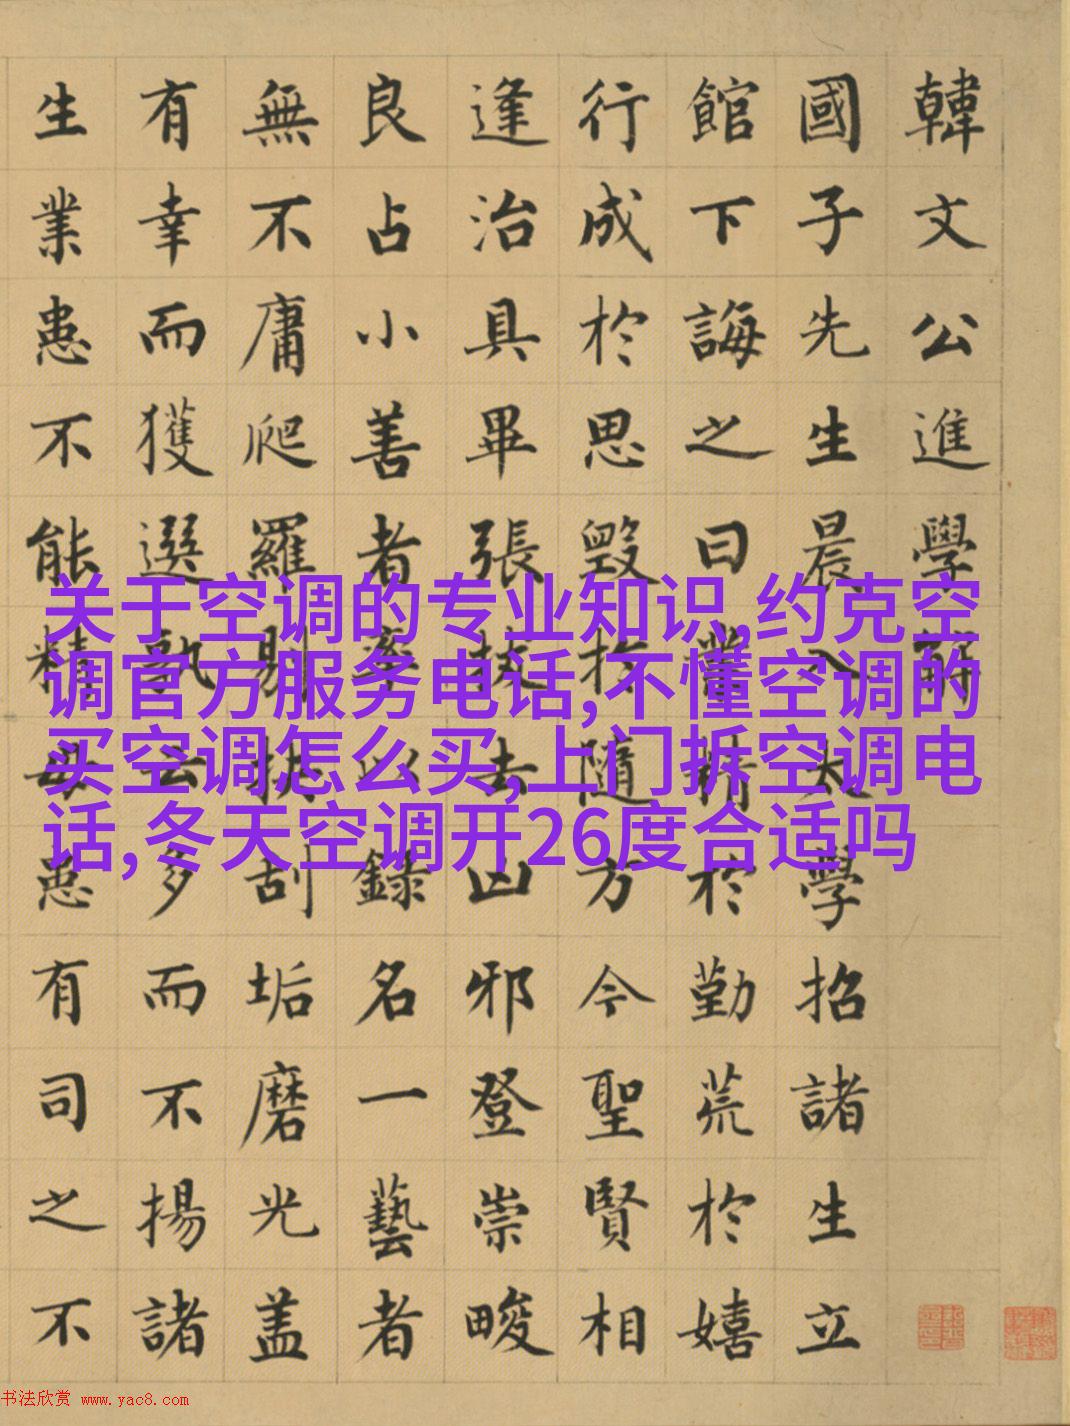 韓文公進學解
國子先生晨入太學招諸生立
館下誨之曰業精於勤荒於嬉
行成於思毀於隨方今聖賢相
逢治具畢張拔去凶邪登崇畯
良占小善者率以錄名一藝者
無不庸爬羅剔抉刮垢磨光盖
有幸而獲選孰云多而不揚諸
生業患不能精毋患有司之不
关于空调的专业知识,约克空
调官方服务电话,不懂空调的
买空调怎么买,上门拆空调电
话,冬天空调开26度合适吗
书法欣赏 www.yac8.com